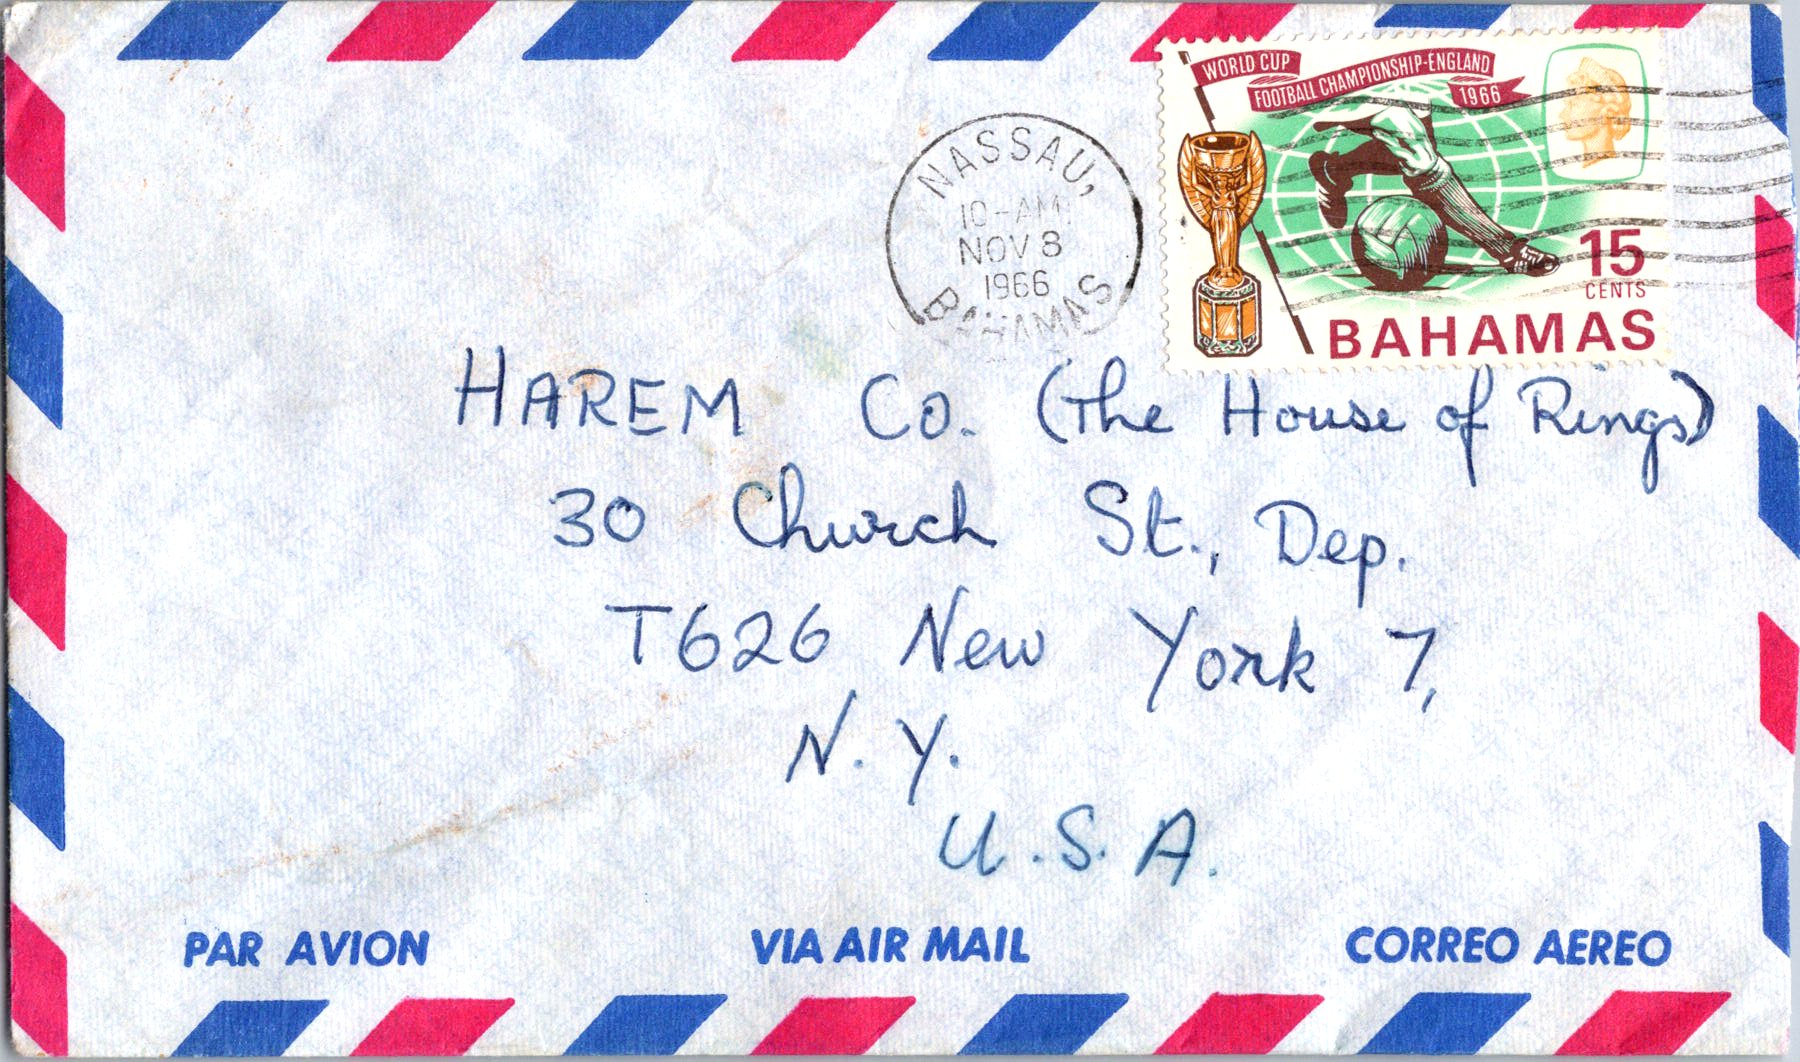 WORLD CUP
FOOTBALL CHAMPIONSHIP-ENGLAND
1966
NASSAU,
10-AM
NOV 8
1966
BAHAMAS
15
CENTS
BAHAMAS
HAREM Co. (The House of Rings)
30 Church St., Dep.
T626 New York 7,
N.Y.
U.S.A.
PAR AVION VIA AIR MAIL CORREO AEREO